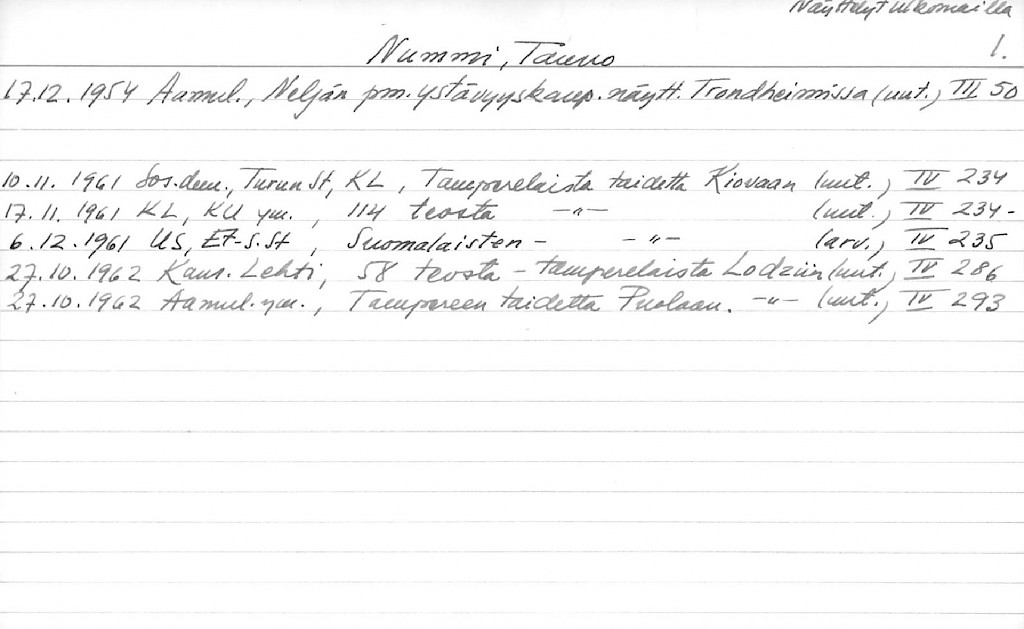 Näyttelyt ulkomailla
Nummi, Tauno 1.
17.12.1954 Aamul., Neljän pm. ystävyyskaup. näytt. Trondheimissa (uut.) III 50
10.11. 1961 Sos.dem., Turun St, KL, Tamperelaista taidetta Kiovaan (uut.) IV 234
17.11. 1961 KL, KU ym., 114 teosta -"- (uut.) IV 234-
6.12.1961 US, Et-S.St, Suomalaisten - -"- (arv.) IV 235
27.10.1962 Kans. Lehti, 58 teosta - tamperelaista Lodziin (uut.) IV 286
27.10.1962 Aamul. ym., Tampereen taidetta Puolaan. -"- (uut.) IV 293